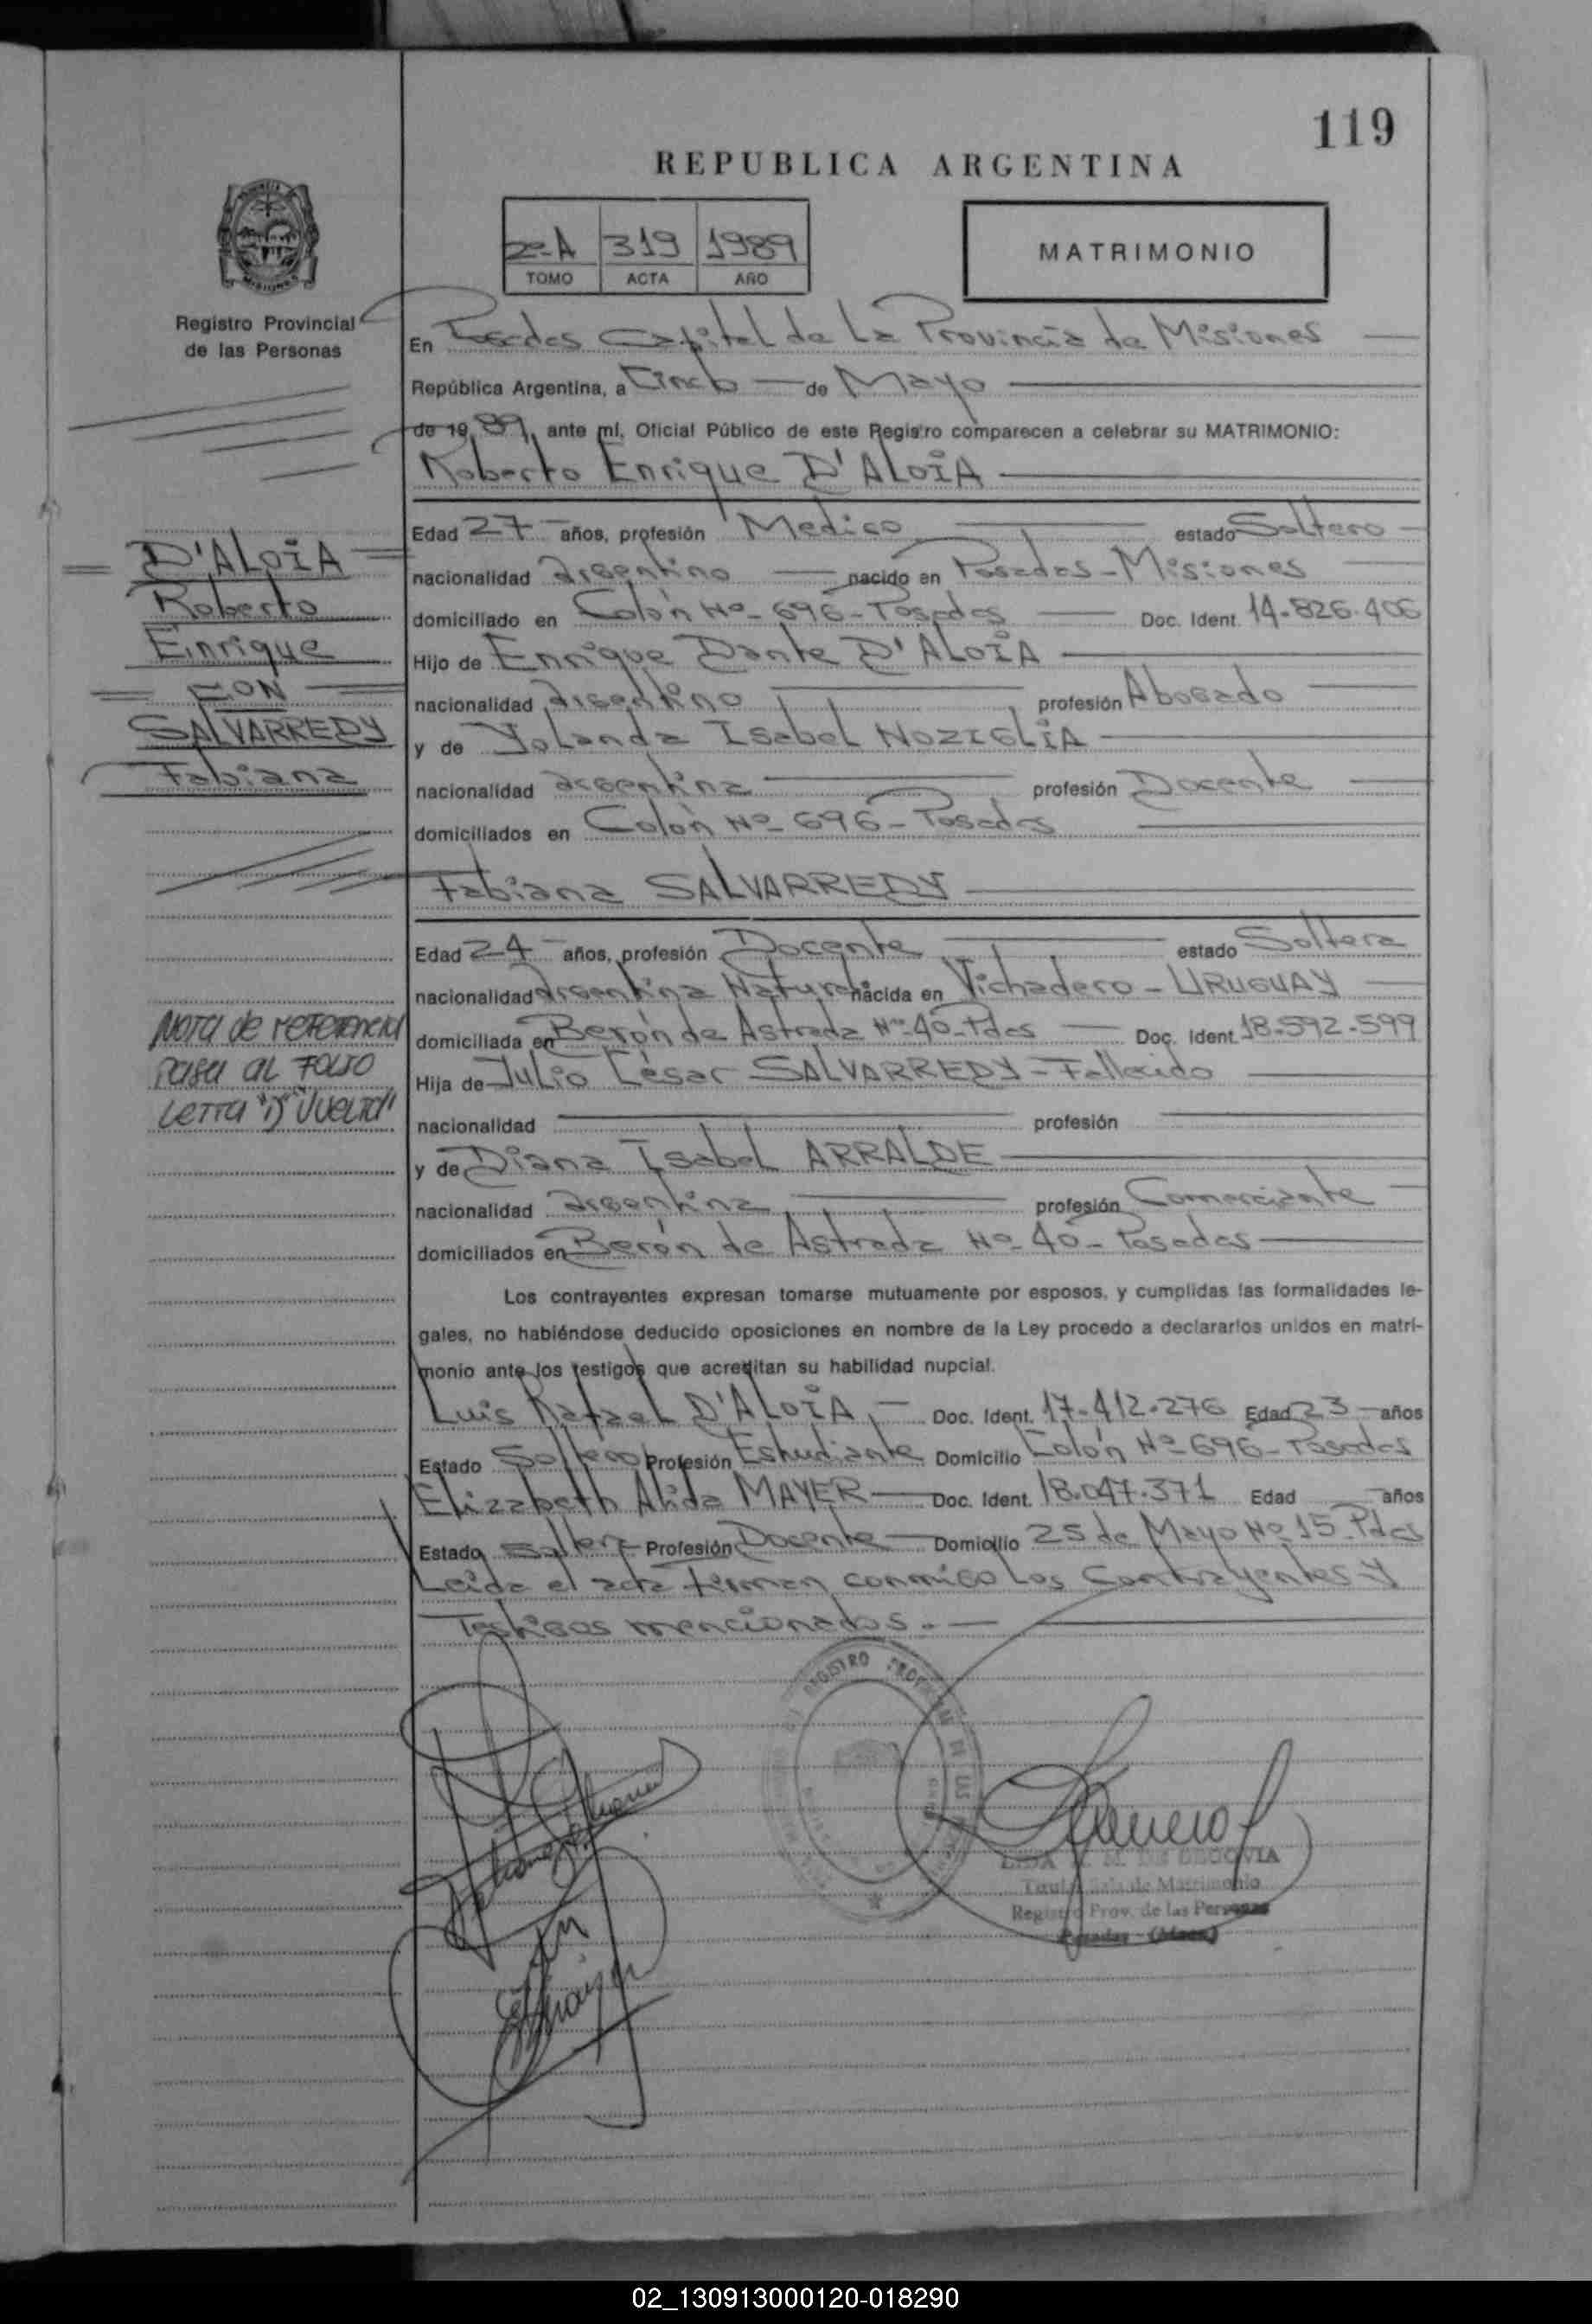 119
REPUBLICA ARGENTINA
2º-A 319 1989
TOMO ACTA AÑO
MATRIMONIO
Registro Provincial
de las Personas
En Posadas Capital de La Provincia de Misiones
República Argentina, a Cinco de Mayo
de 19 89, ante mí, Oficial Público de este Registro comparecen a celebrar su MATRIMONIO:
Roberto Enrique D'ALOIA
D'ALOIA
Roberto
Enrique
CON
SALVARREDY
Fabiana
Edad 27 años, profesión Medico estado Soltero
nacionalidad Argentino nacido en Posadas - Misiones
domiciliado en Colón Nº 696 - Posadas Doc. Ident. 14.826.406
Hijo de Enrique Dante D'ALOIA
nacionalidad Argentino profesión Abogado
y de Yolanda Isabel NOZIGLIA
nacionalidad argentina profesión Docente
domiciliados en Colón Nº 696 - Posadas
Fabiana SALVARREDY
Edad 24 años, profesión Docente estado Soltera
nacionalidad Argentina Natural nacida en Vichadero - URUGUAY
domiciliada en Berón de Astrada Nº 40 - Pdas Doc. Ident. 18.592.599
Hija de Julio César SALVARREDY - Fallecido
nacionalidad profesión
y de Diana Isabel ARRALDE
nacionalidad argentina profesión Comerciante
domiciliados en Berón de Astrada Nº 40 - Posadas
Nota de referencia
pasa al FOLIO
Letra "D" Vuelta"
Los contrayentes expresan tomarse mutuamente por esposos, y cumplidas las formalidades le-
gales, no habiéndose deducido oposiciones en nombre de la Ley procedo a declararlos unidos en matri-
monio ante los testigos que acreditan su habilidad nupcial.
Luis Rafael D'ALOIA Doc. Ident. 17.412.276 Edad 23 años
Estado Soltero Profesión Estudiante Domicilio Colón Nº 696 - Posadas
Elizabeth Alida MAYER Doc. Ident. 18.047.371 Edad años
Estado Soltera Profesión Docente Domicilio 25 de Mayo Nº 15 - Pdas
Leida el acta firman conmigo Los Contrayentes y
Testigos mencionados.
REGISTRO DE LAS
DE SEGOVIA
Titular Sala de Matrimonio
Registro Prov. de las Personas
Posadas - (Mnes)
02_130913000120-018290